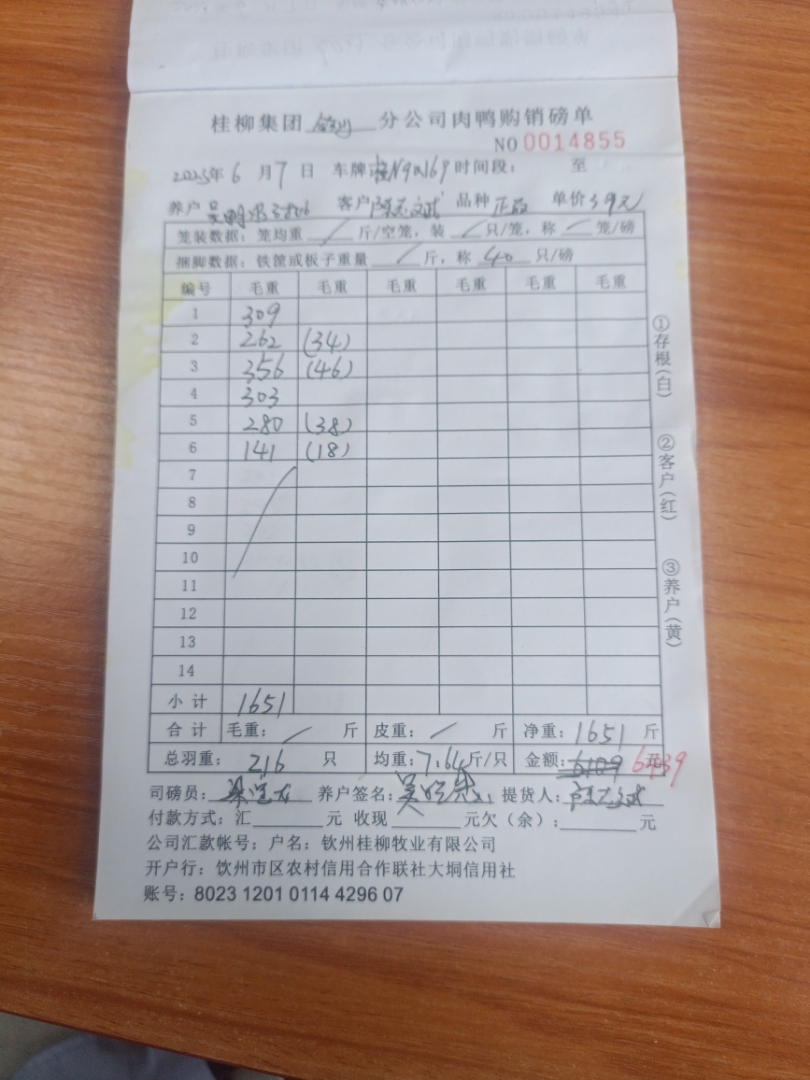 桂柳集团 钦州 分公司肉鸭购销磅单
NO 0014855
2025年 6 月 7 日 车牌 桂N90169 时间段： 至
养户 客户 品种 正品 单价 3.9元
笼装数据：笼均重 / 斤/空笼，装 / 只/笼，称 / 笼/磅
捆脚数据：铁筐或板子重量 / 斤，称 40 只/磅
编号 毛重 毛重 毛重 毛重 毛重 毛重
1 309
2 262 (34)
3 356 (46)
4 303
5 280 (38)
6 141 (18)
7
8
9
10
11
12
13
14
小计 1651
合计 毛重： / 斤 皮重： / 斤 净重：1651 斤
总羽重： 216 只 均重：7.64斤/只 金额：6109 6439元
司磅员： 养户签名： 提货人：
付款方式：汇 元 收现 元欠（余）： 元
公司汇款帐号；户名；钦州桂柳牧业有限公司
开户行：钦州市区农村信用合作联社大垌信用社
账号：8023 1201 0114 4296 07
①存根（白）
②客户（红）
③养户（黄）